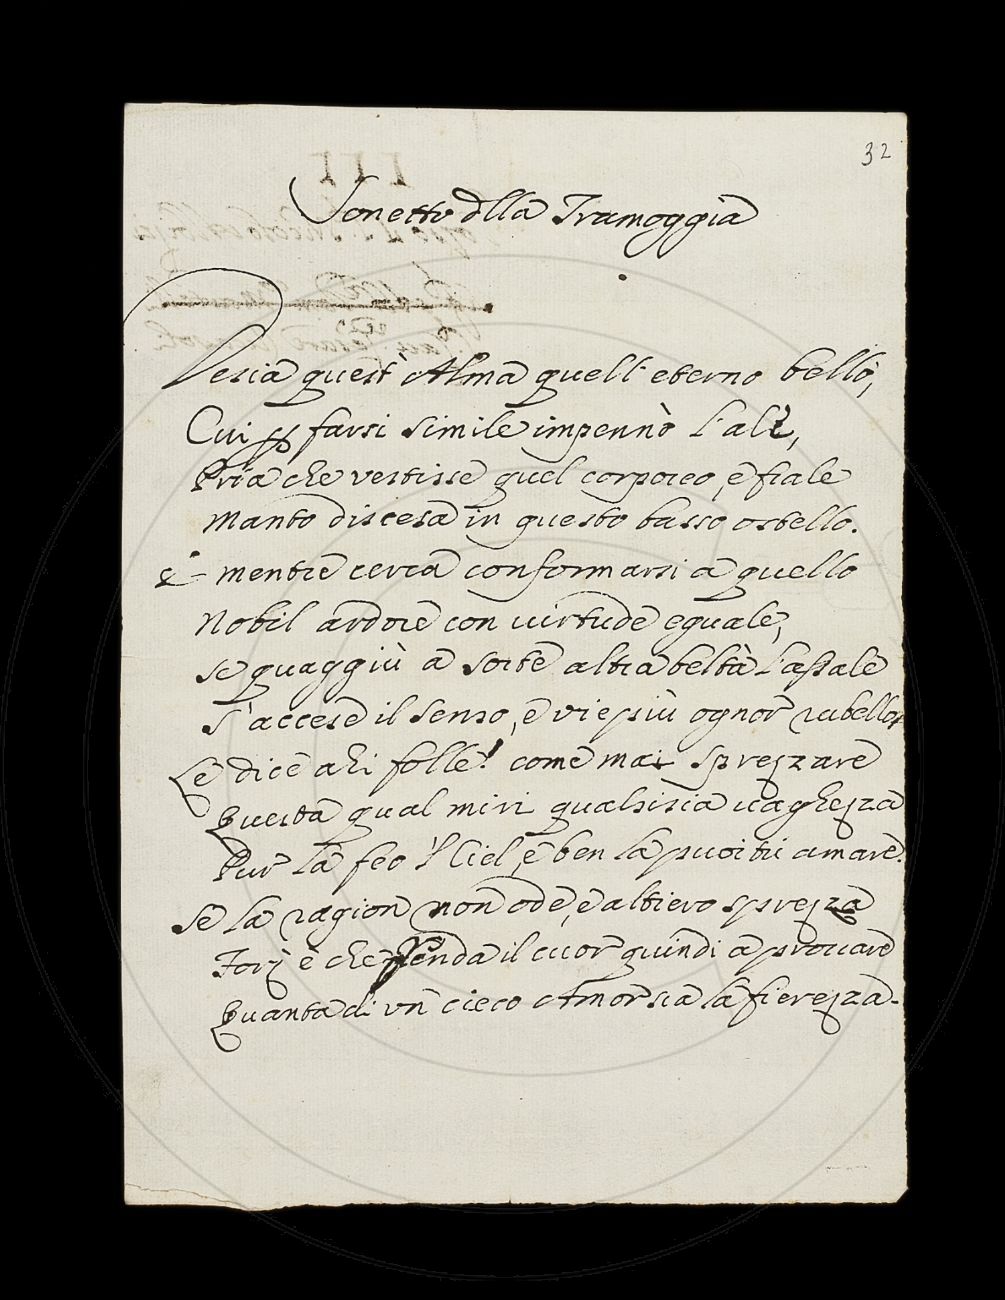 32
Sonetto dlla Tramoggia
Vesia quest' Alma quell' eterno bello,
Cui p farsi simile impennò l'ale,
Pria che vestisse quel corporeo, e frale
Manto discesa in questo basso ostello.
E mentre cerca conformarsi a quello
Nobil ardore con virtude eguale,
Se quaggiù a sorte altra beltà l'assale
S'accese il senso, e vie più ognor rubello
Le dice ahi folle! come mai sprezzare
Questa qual miri qualsisia vaghezza
Pur la feo 'l Ciel, e ben la puoi tù amare.
Se la ragion non ode, e altiero sprezza
Forz' è che penda il cuor quindi a provare
Quanta di vn cieco Amor sia la fierezza.